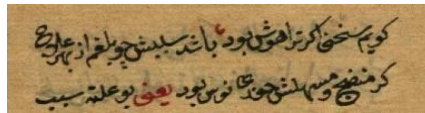 کویم سخنی اکر ترا هوش بود باشد سببش چو بلغم از بهر علاج
کر منضج و مسهلش نوس بود یعنی بو علة سبب